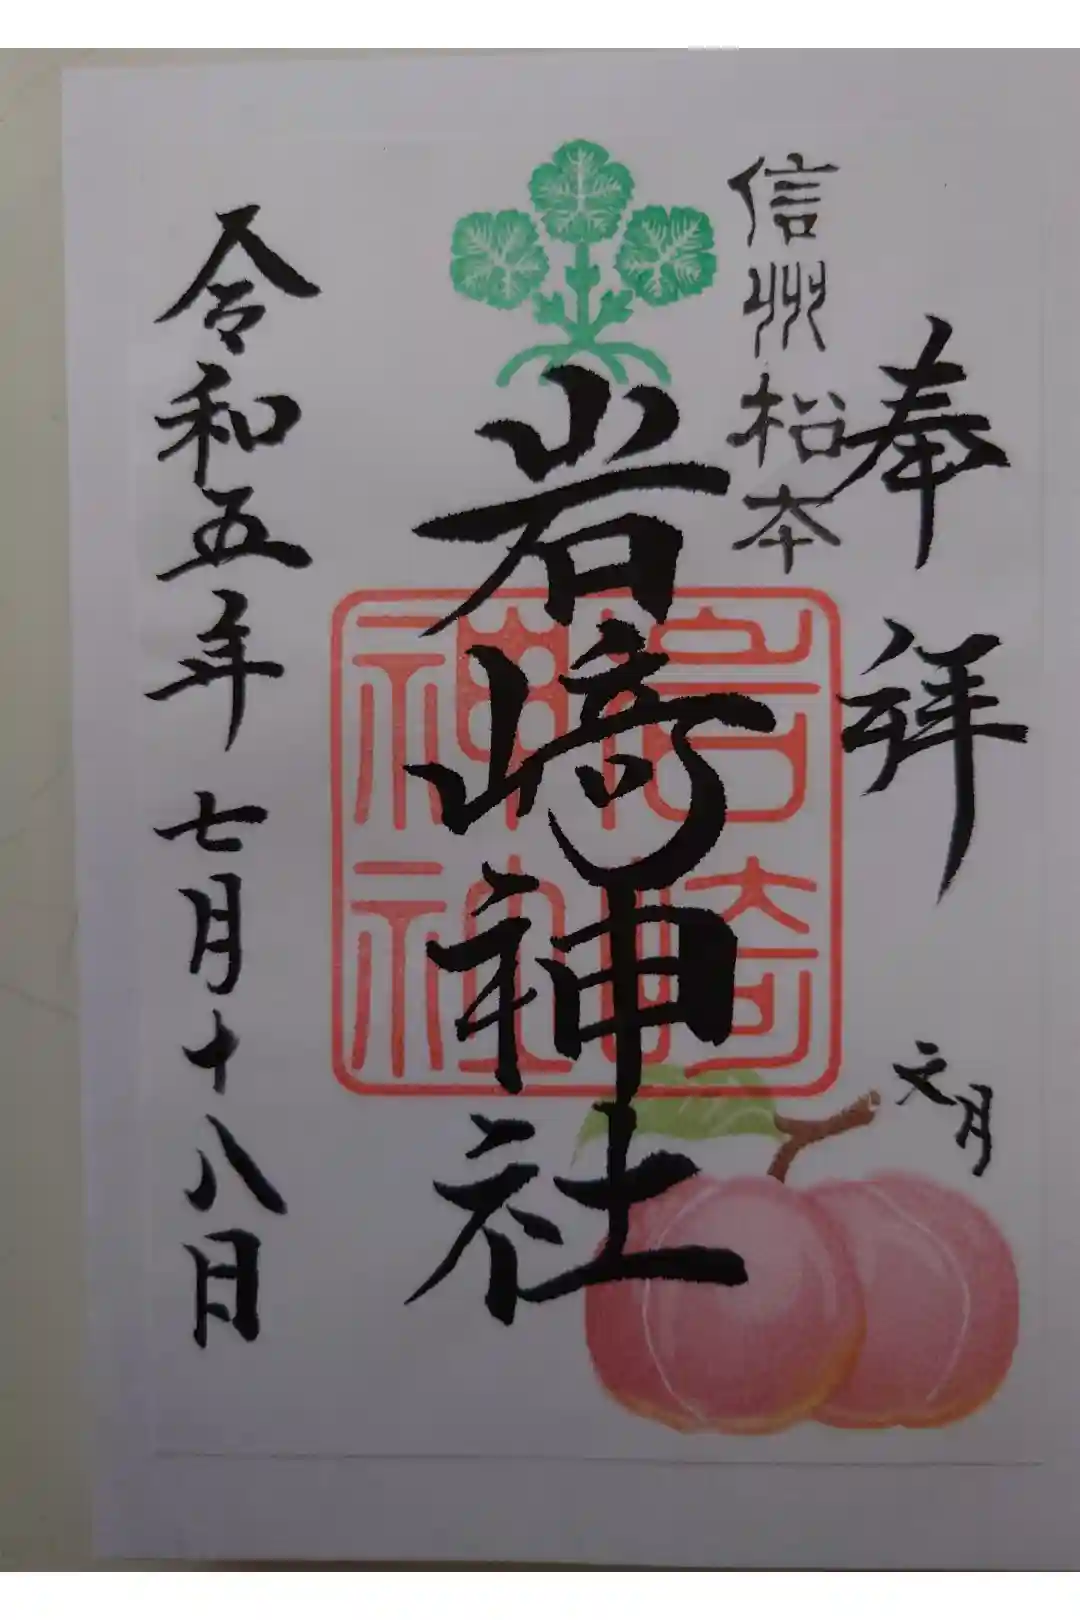 奉拝
文月
信州松本
岩崎神社
岩崎
神社
令和五年七月十八日